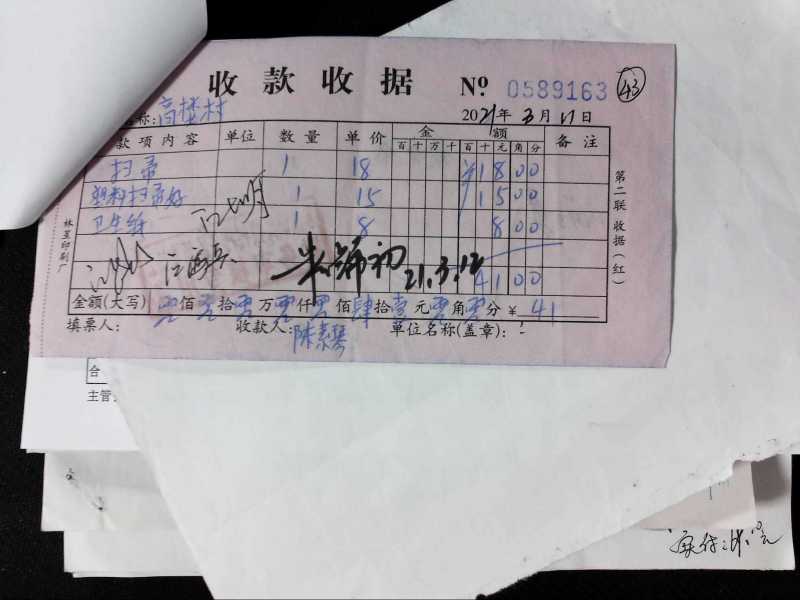 收款收据 Nº 0589163 43
称: 高楼村 2021年3月11日
款项内容 单位 数量 单价 金额 备注
百十万千百十元角分
扫帚 1 18 ¥1800
塑料扫帚 1 15 1500
卫生纸 1 8 800
21.3.12
4100
金额(大写) 零佰零拾零万零仟零佰肆拾壹元零角零分 ¥ 41
填票人: 收款人: 陈素琴 单位名称(盖章):
第二联 收据(红)
林垦印刷厂
合
主管